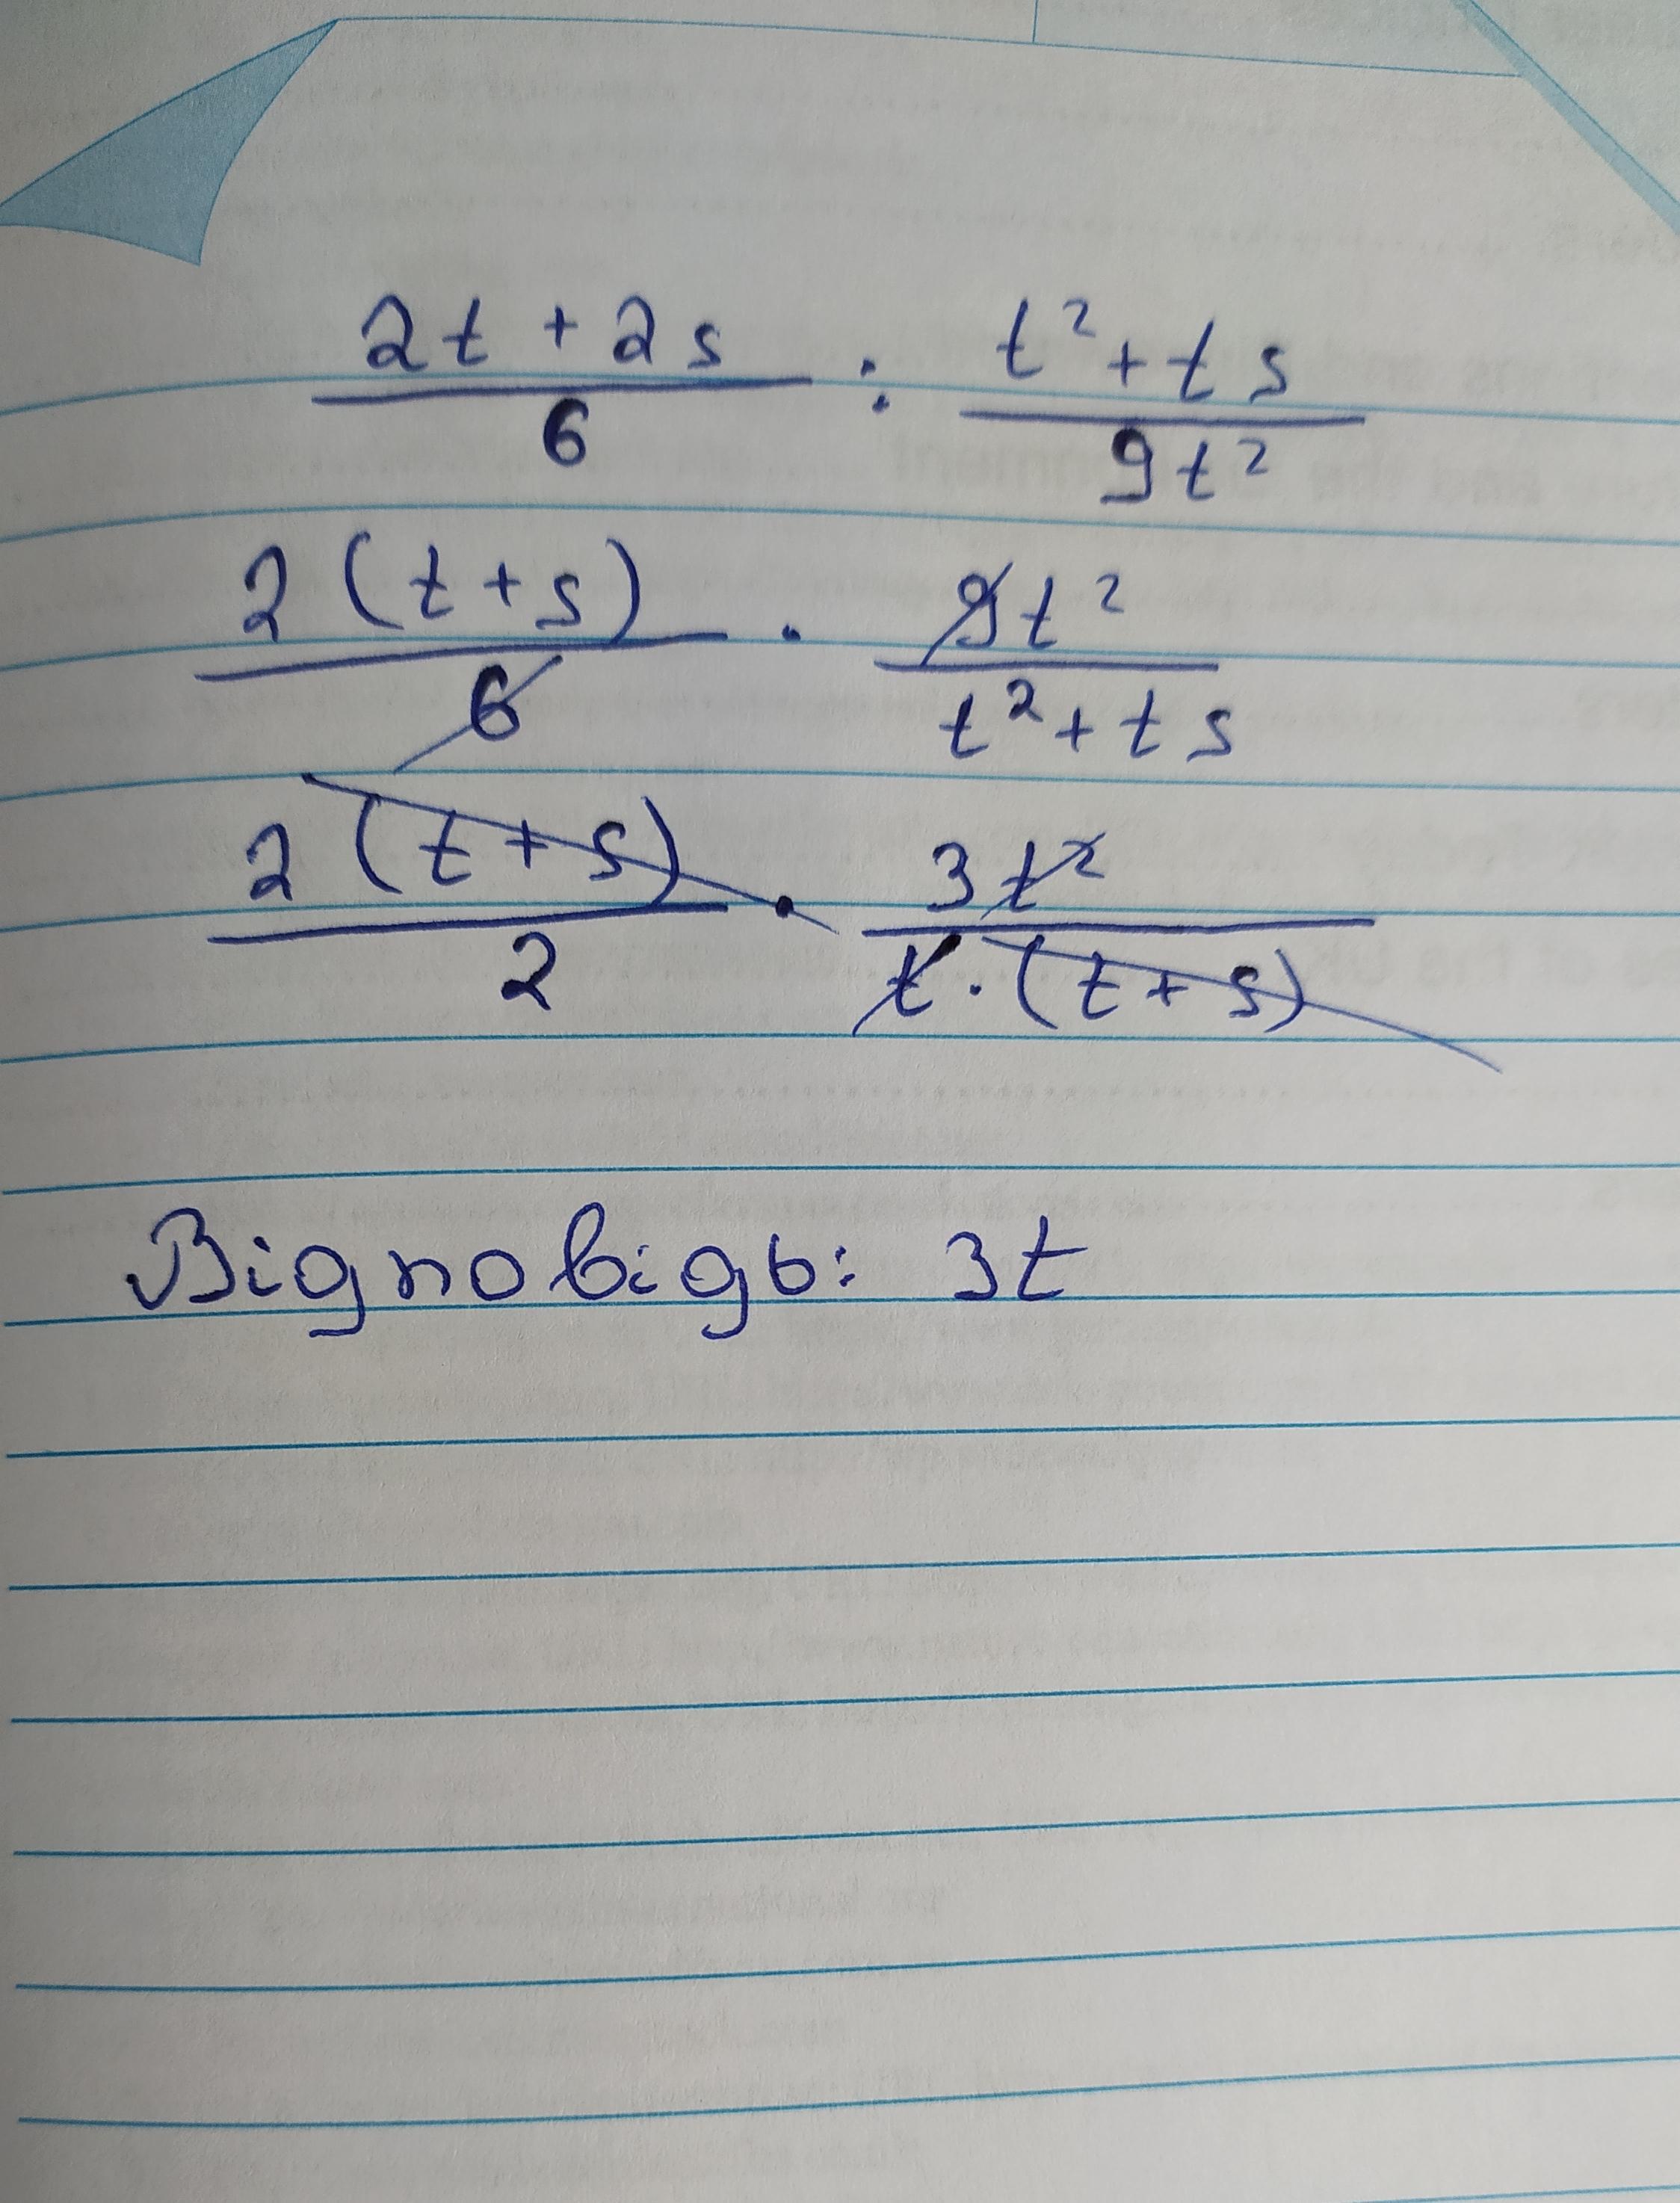 2t + 2s / 6 : t² + ts / 9t²
2(t+s) / 6 · 9t² / t² + ts
2(t+s) / 2 · 3t² / t·(t+s)
Відповідь: 3t